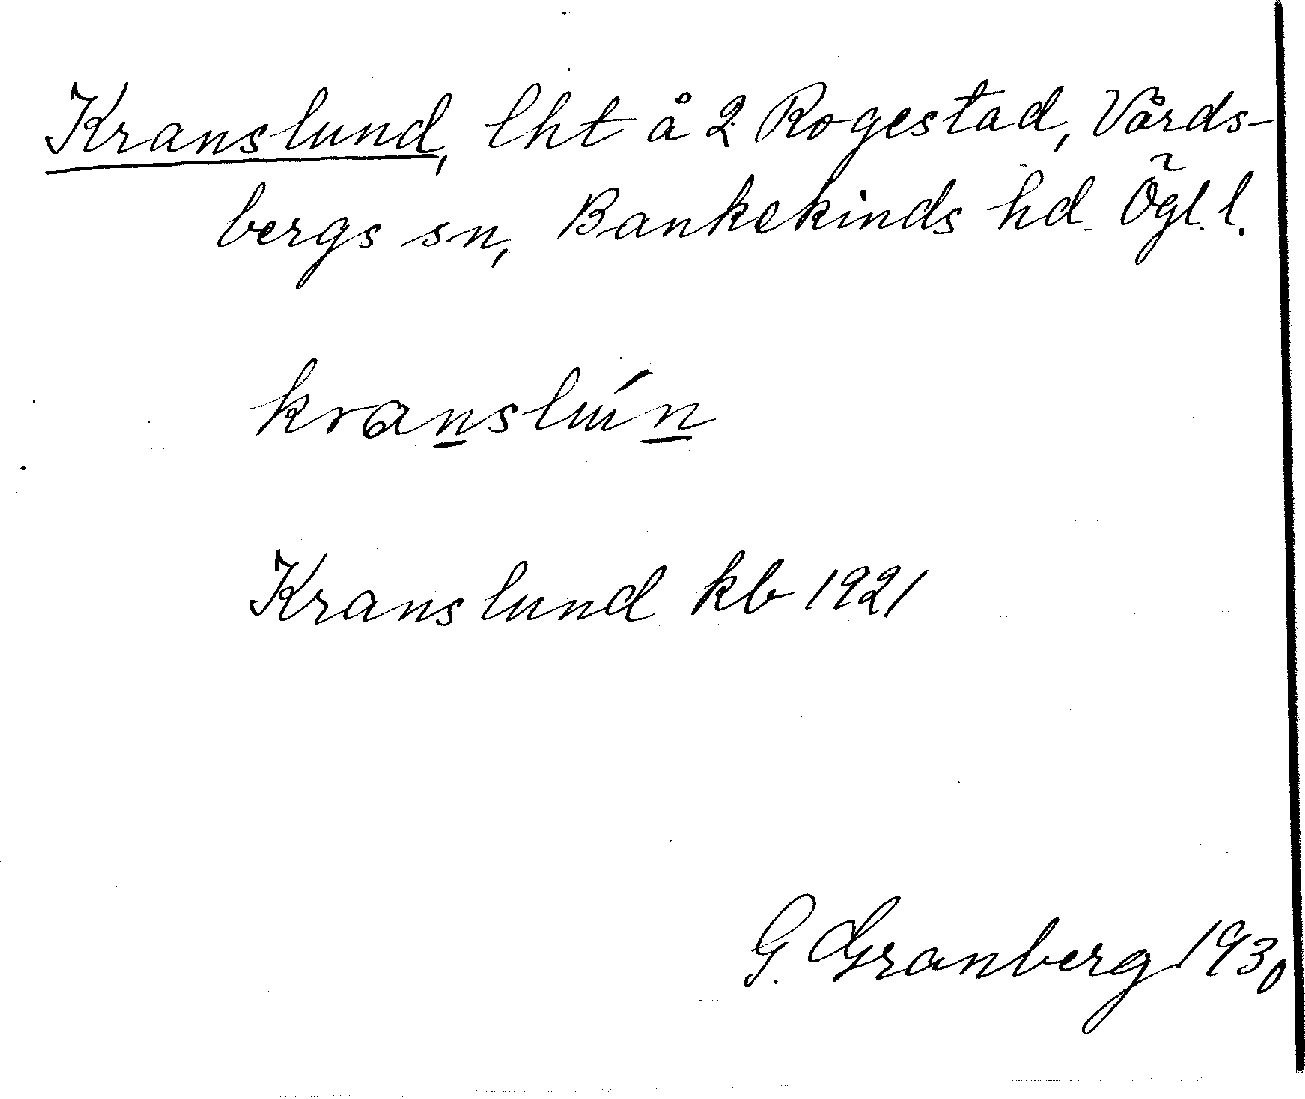 Kranslund, lht å 2 Rogestad, Vårds-
bergs sn, Bankekinds hd. Ögl. l.
kranslún
Kranslund kb 1921
G. Granberg 1930